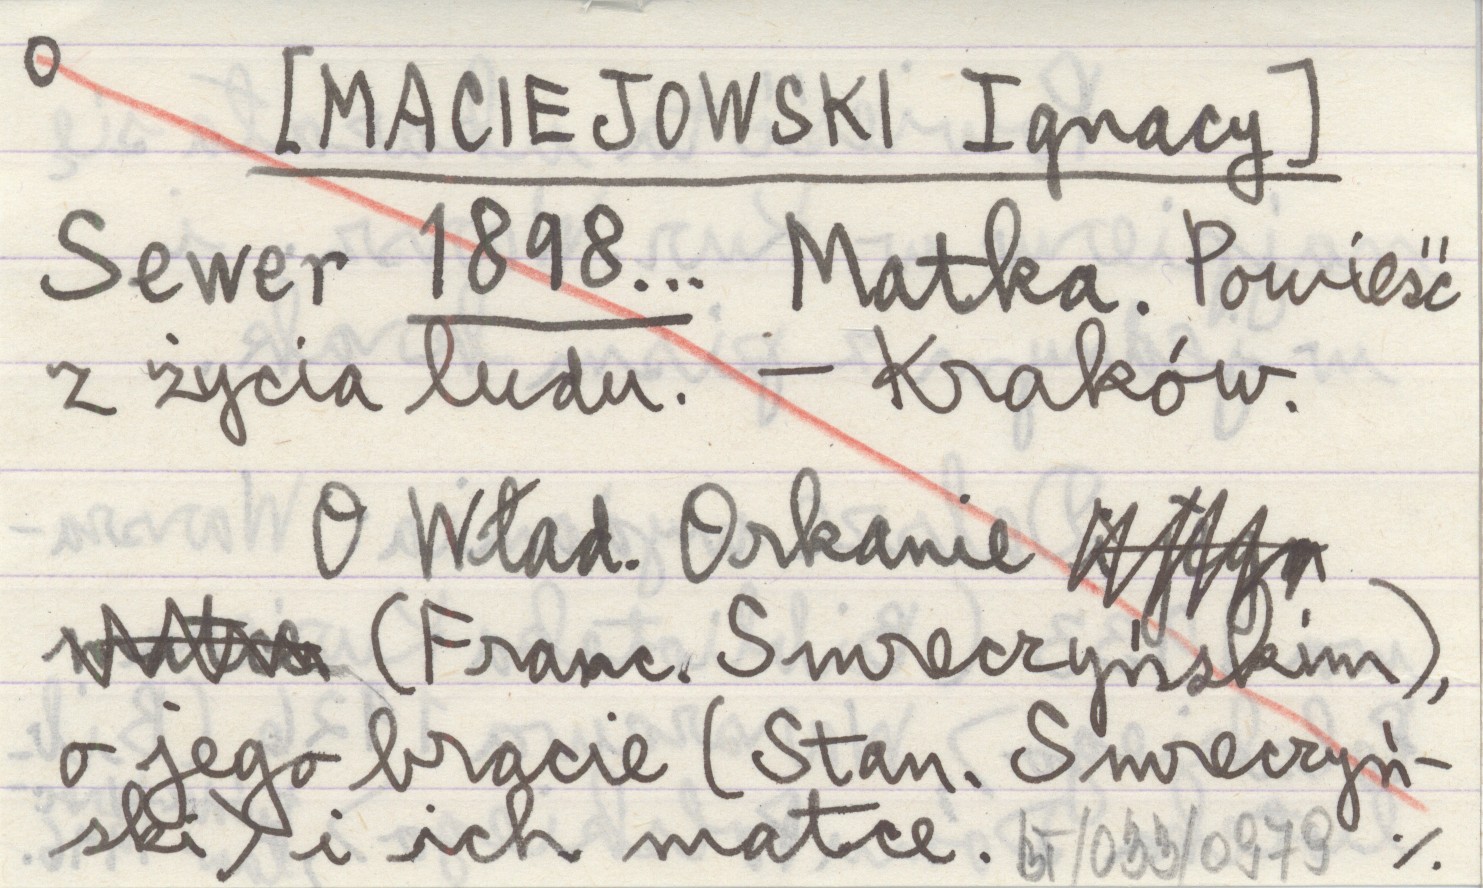 O
[MACIEJOWSKI Ignacy]
Sewer 1898... Matka. Powieść
z życia ludu. – Kraków.
O Wład. Orkanie
(Franc. Smreczyńskim),
o jego bracie (Stan. Smreczyń-
ski) i ich matce. BT/033/0979 ./.